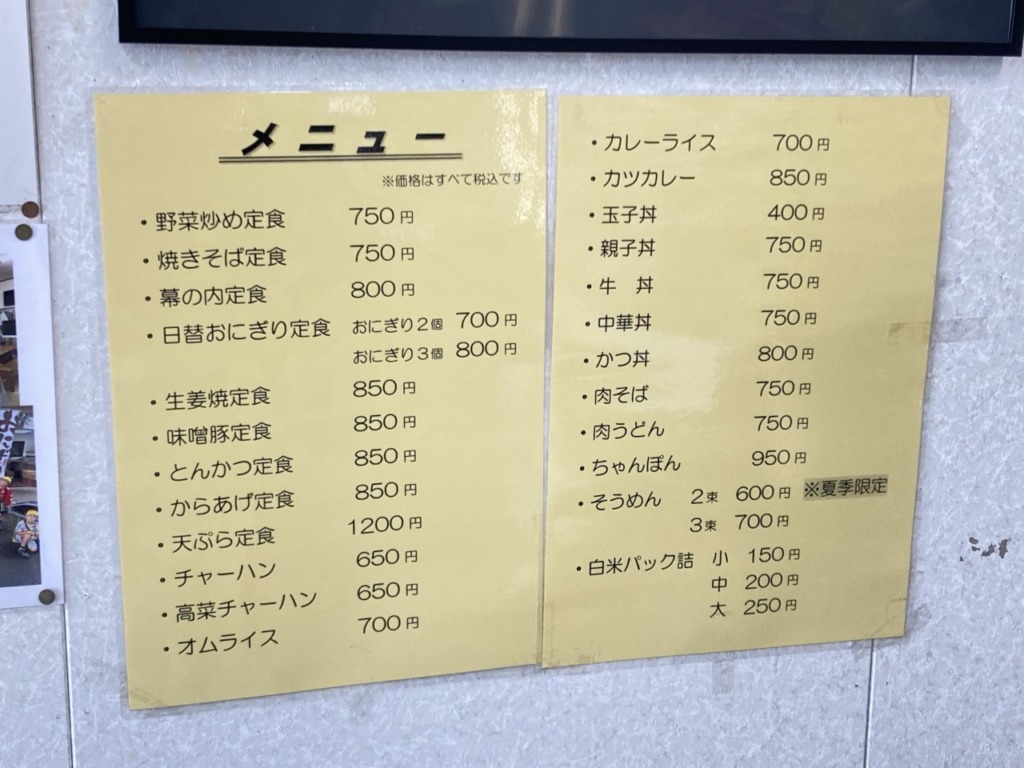 メニュー
※価格はすべて税込です
・野菜炒め定食 750円
・焼きそば定食 750円
・幕の内定食 800円
・日替おにぎり定食 おにぎり2個 700円
おにぎり3個 800円
・生姜焼定食 850円
・味噌豚定食 850円
・とんかつ定食 850円
・からあげ定食 850円
・天ぷら定食 1200円
・チャーハン 650円
・高菜チャーハン 650円
・オムライス 700円
・カレーライス 700円
・カツカレー 850円
・玉子丼 400円
・親子丼 750円
・牛 丼 750円
・中華丼 750円
・かつ丼 800円
・肉そば 750円
・肉うどん 750円
・ちゃんぽん 950円
・そうめん 2束 600円 ※夏季限定
3束 700円
・白米パック詰 小 150円
中 200円
大 250円